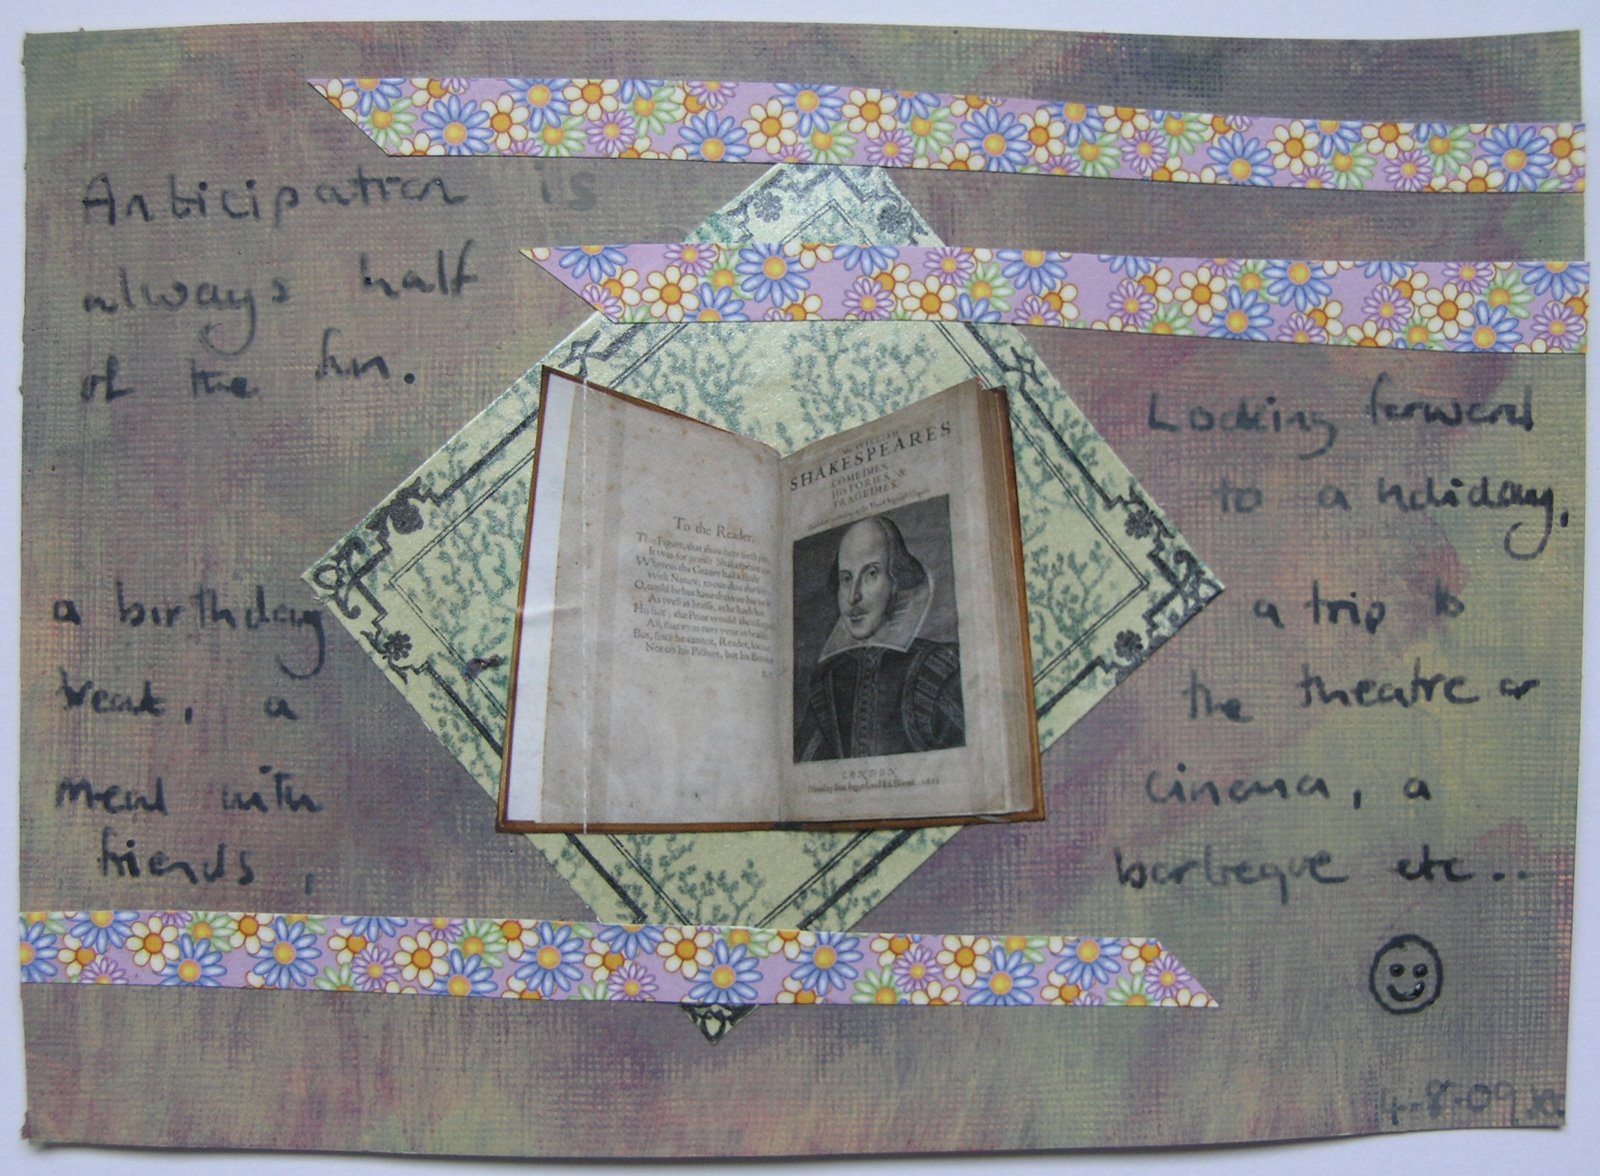 Anticipation is
always half
of the fun.
Looking forward
to a holiday,
a trip to
the theatre or
cinema, a
barbeque etc..
a birthday
treat, a
meal with
friends,
To the Reader.
This Figure, that thou here seest put,
It was for gentle Shakespeare
Wherein the Grauer had a strife
with Nature, to out-doo the life:
O, could he but haue drawne his wit
As well in brasse, as he hath hit
His face; the Print would then
All, that was euer writ in brasse.
But, since he cannot, Reader, looke
Not on his Picture, but his Booke
Mr. WILLIAM
SHAKESPEARES
COMEDIES,
HISTORIES, &
TRAGEDIES.
LONDON
4-8-09